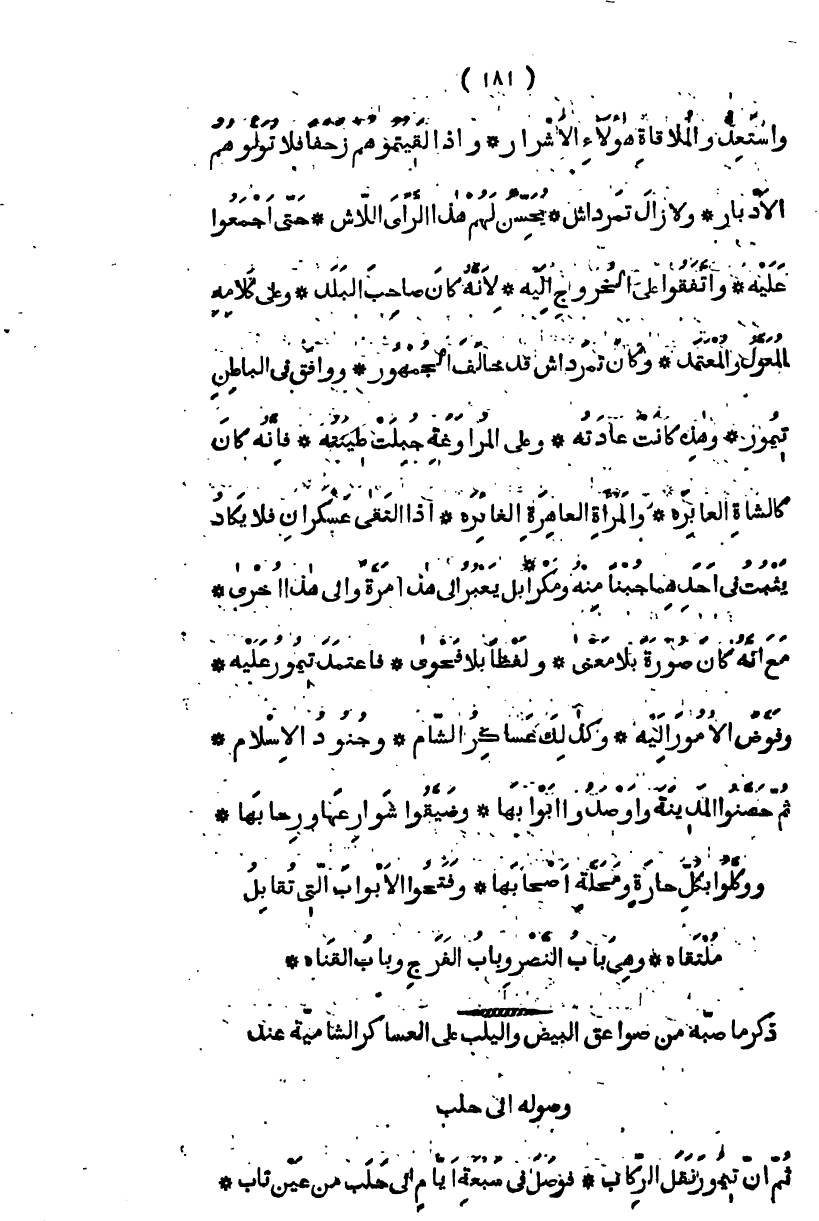 ( ١٨١ )
واسْتَعِدُّوا لمُلاقاةِ هٰؤلآءِ الاَشْرار * واذا لَقِيتُمُوْهُمْ زَحفًا فلا تُوَلُّوْهُمُ
الاَدْبار * ولا زالَ تَمرداش * يُحَسِّنُ لَهُمْ هٰذا الرَّأىَ اللّاش * حَتّى اَجْمَعوا
عَلَيْه * واتَّفَقوا علىَ الخُروجِ اِلَيْه * لِاَنَّهُ كانَ صاحِبَ البَلَد * وعلى كَلامِهِ
المُعَوَّلُ والمُعْتَمَد * وكانَ تمُرْداش قد خالَفَ الجُمْهُور * ووافَقَ فى الباطِنِ
تِيمُور * وهٰذِهِ كانَتْ عادَتَه * وعلى المُراوَغَةِ جُبِلَتْ طِينَتُه * فاِنَّهُ كانَ
كالشاةِ العائِرَه * والمَرْأةِ العاهِرَةِ الغائِرَه * اذا الْتَقى عَسْكَرانِ فلا يَكادُ
يَثْبُتُ فى اَحَدِهِما جُبْنًا مِنْهُ ومَكْرًا * بل يَعْبُرُ الى هٰذا مَرَّةً والى هٰذا اُخْرى *
مَعَ اَنَّهُ كانَ صُوْرَةً بِلا مَعْنى * ولَفْظًا بلا فَحْوى * فاعتَمَدَ تيمُور عَلَيْه *
وفَوَّضَ الاُمُورَ اِلَيْه * وكَذٰلِكَ عَساكِرُ الشّام * وجُنودُ الاِسْلام *
ثُمَّ حَصَّنُوا المَدِينَةَ واَوْصَدُوا اَبْوابَها * وضَيَّقُوا شَوارِعَها ورِحابَها *
ووكَّلُوا بكُلِّ حارَةٍ ومَحَلَّةٍ اَصْحابَها * وفَتَحوا الاَبْوابَ الّتى تُقابِلُ
مُلْتَقاه * وهِىَ بابُ النَّصْرِ وبابُ الفَرَجِ وبابُ القَناه *
ذكر ما صبّه من صواعق البيض واليلب على العساكر الشاميّة عند
وصوله الى حلب
ثُمَّ انَّ تِيمُورَ نَقَلَ الرِّكاب * فوَصَلَ فى سَبْعَةِ اَيّامٍ الى حَلَبَ من عَيْنِ تاب *